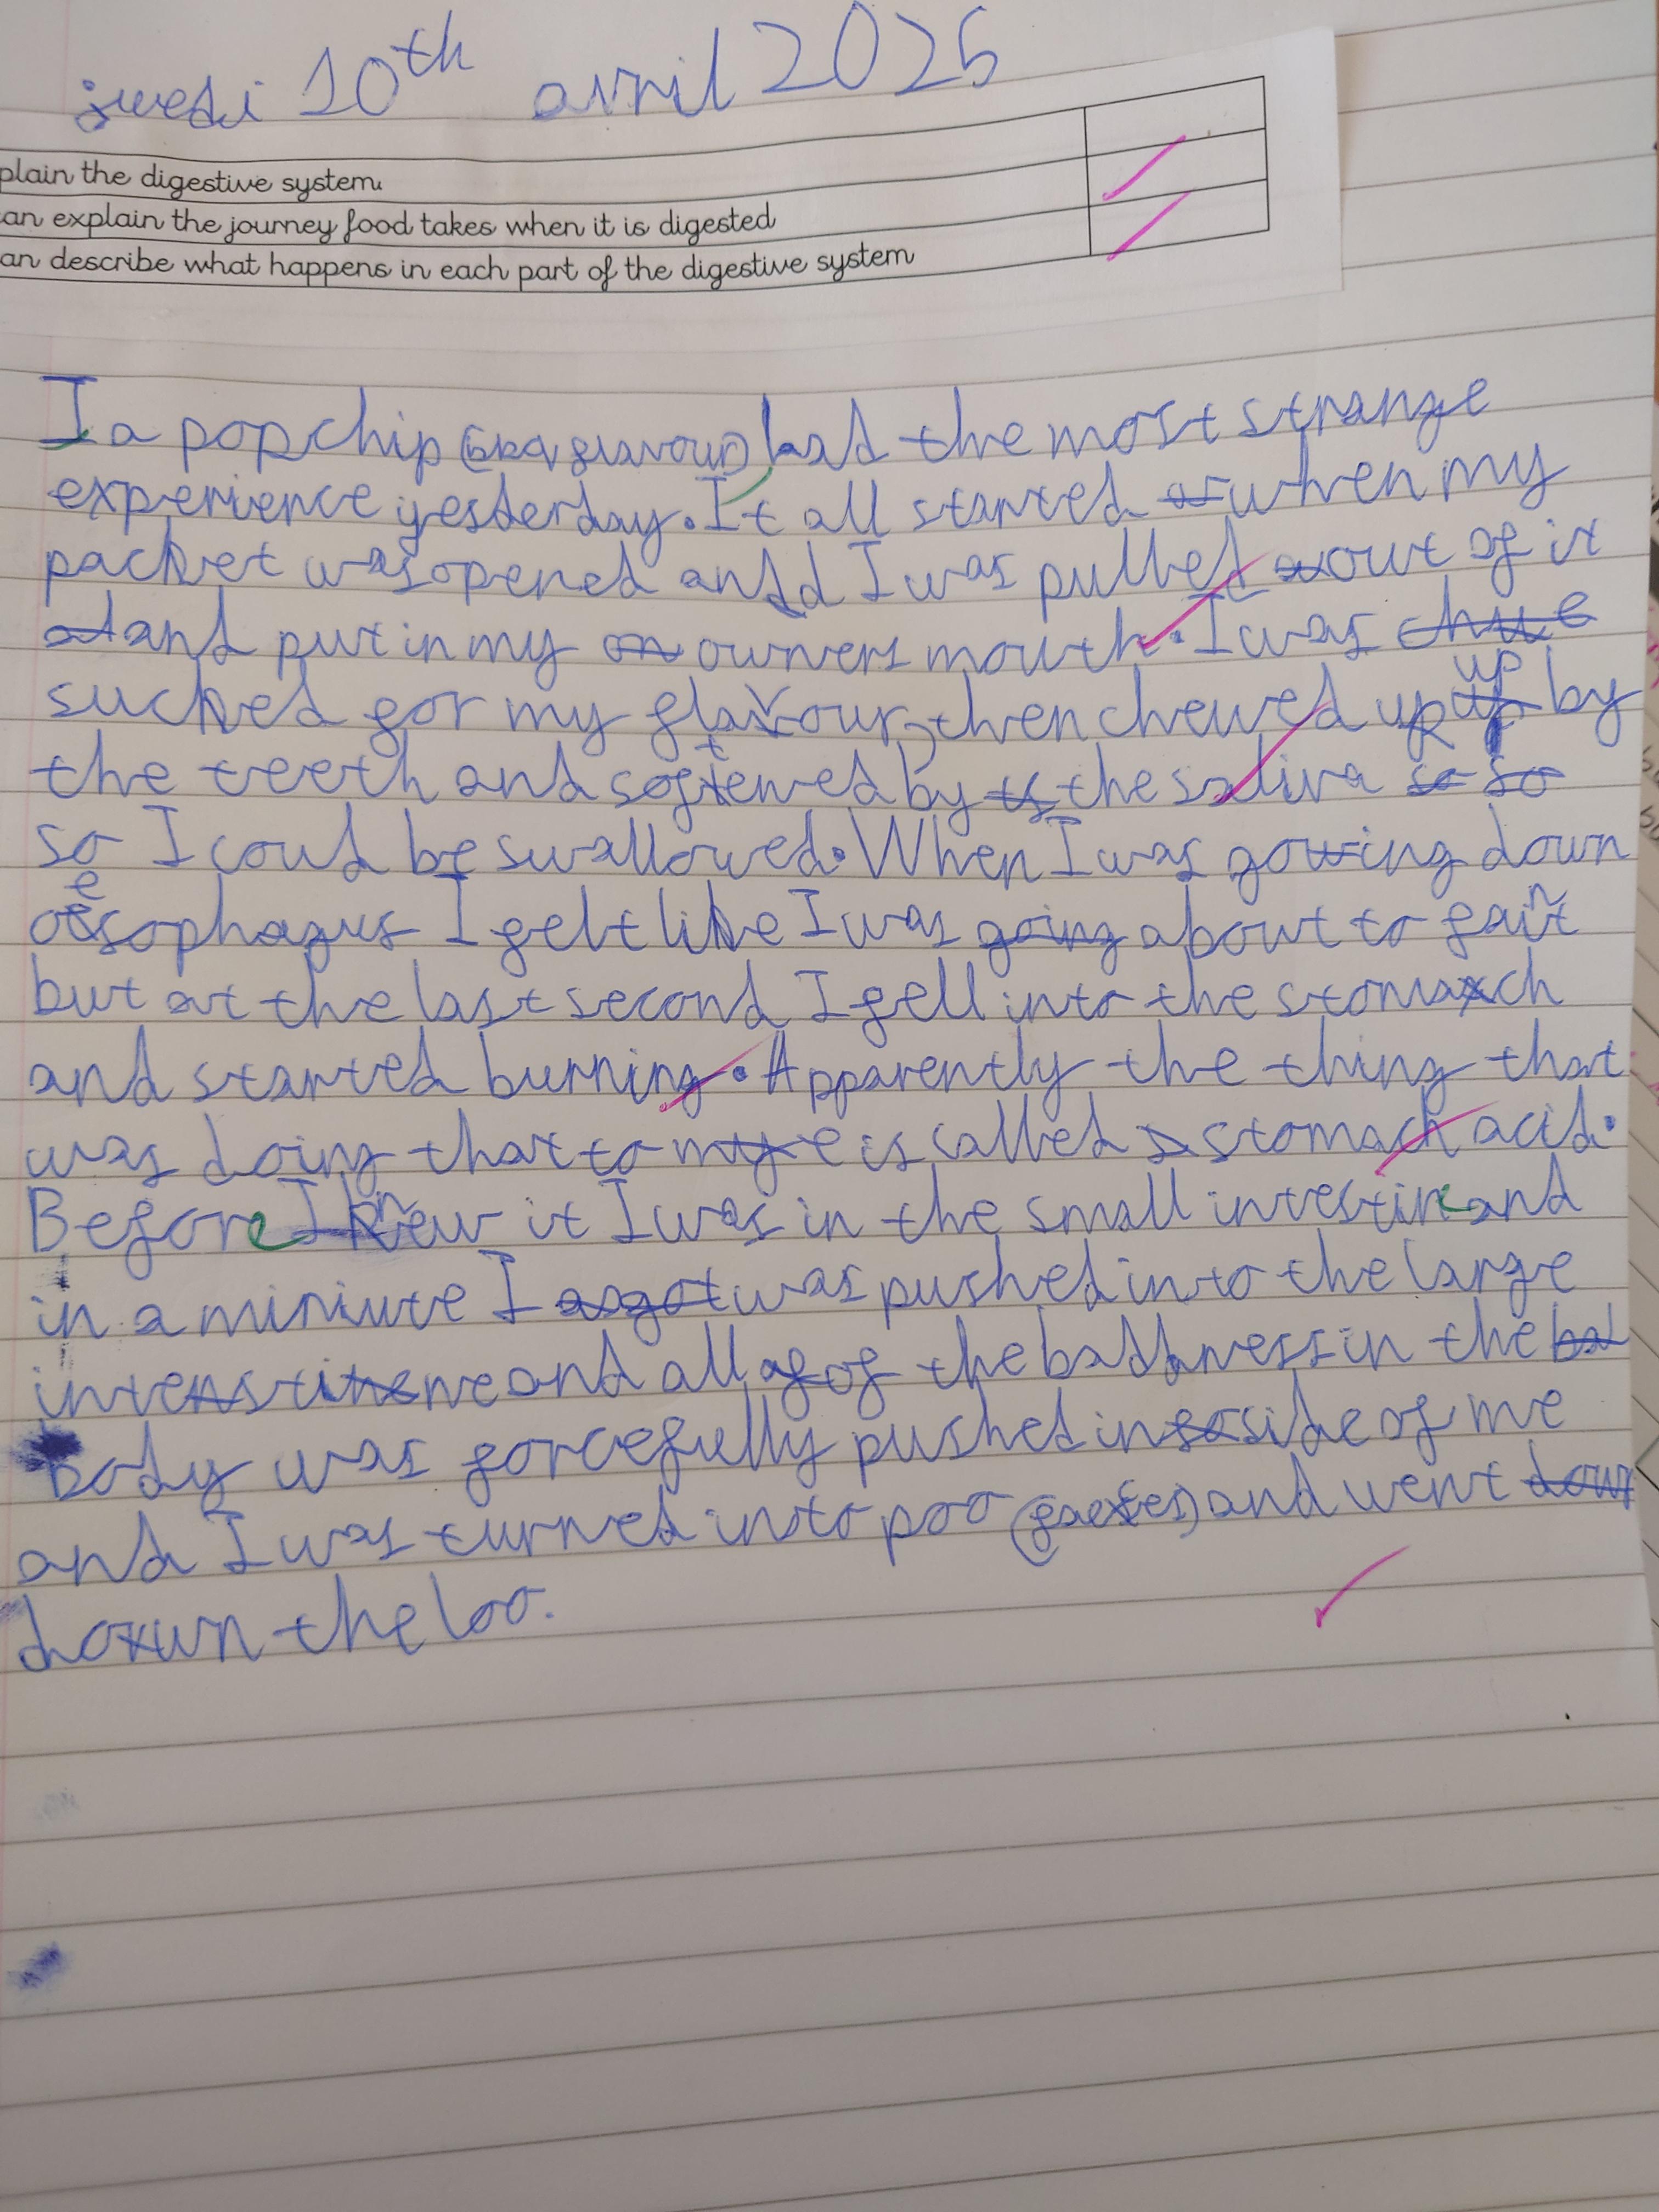 juedi 10th avril 2025
plain the digestive system.
an explain the journey food takes when it is digested
an describe what happens in each part of the digestive system
I a popchip (BBQ flavour) had the most strange
experience yesterday. It all started when my
packet was opened and I was pulled out of it
and put in my owners mouth. I was
sucked for my flavour, then chewed up up by
the teeth and softened by the saliva
so I could be swallowed. When I was going down
oesophagus I felt like I was about to faint
but at the last second I fell into the stomach
and started burning. Apparently the thing that
was doing that to me is called stomach acid.
Before I knew it I was in the small intestine and
in a miniute I was pushed into the large
intenstine and all of the baddness in the
body was forcefully pushed inside of me
and I was turned into poo (faeces) and went
down the loo.